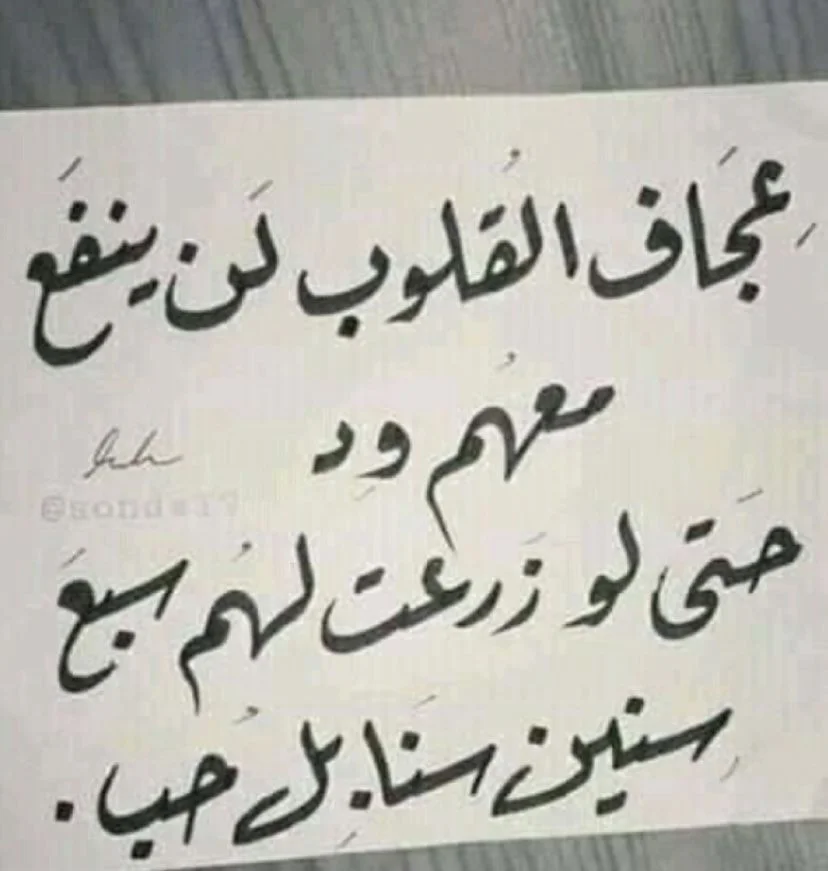 عِجَاف القُلوب لَن ينفَع
معهُم ود
حَتى لو زَرعت لهُم سبعَ
سِنين سنَابِل حُب .
@sonds17